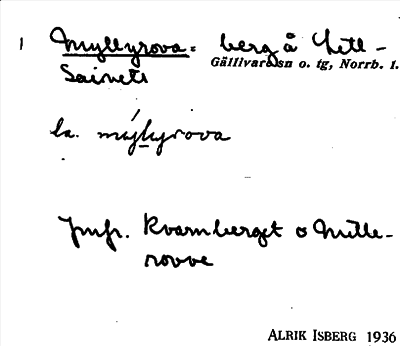 1 Myllyrova = berg å Litl-
Gällivare sn o. tg, Norrb. l.
Saivets
la. mýlyrova
Jmfr. Kvarnberget o Mulle-
rovve
ALRIK ISBERG 1936